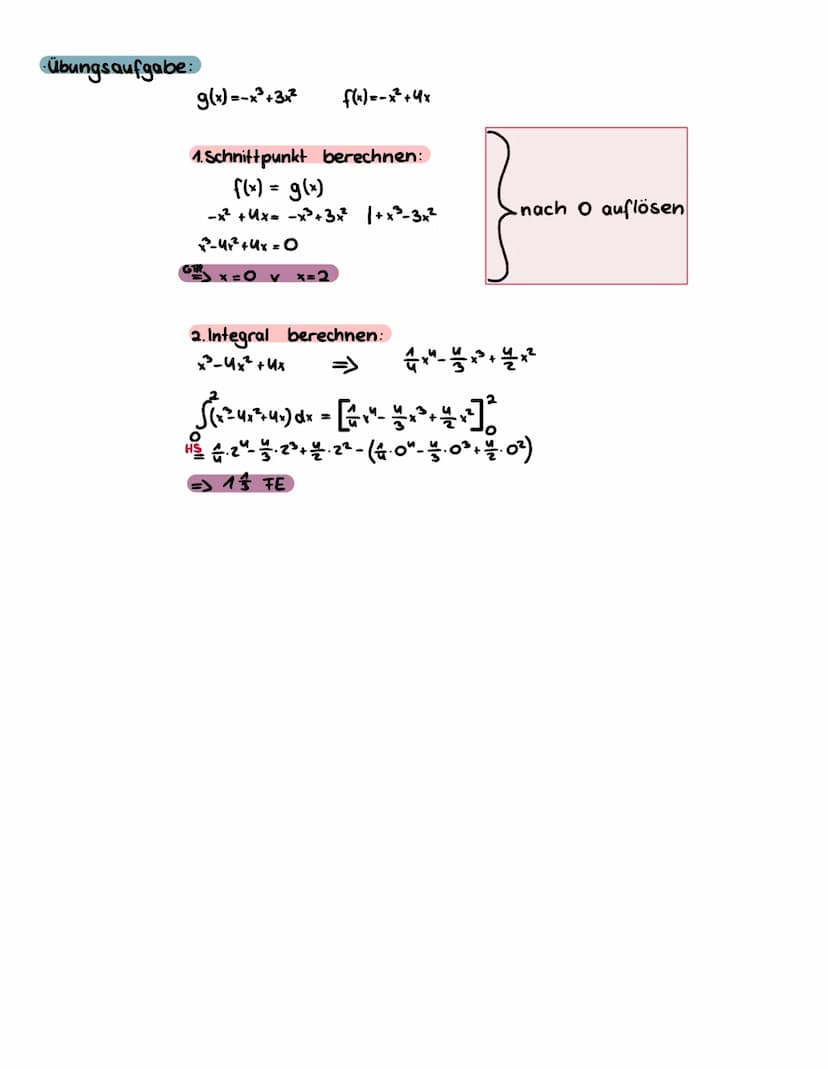 ·Übungsaufgabe:
g(x)=-x³+3x² f(x)=-x²+4x
1.Schnittpunkt berechnen:
f(x) = g(x)
-x² +4x= -x³+3x² |+x³-3x²
x³-4x²+4x=0
GTR => x=0 v x=2
nach 0 auflösen
2.Integral berechnen:
x³-4x²+4x => 1/4 x⁴- 4/3 x³+ 4/2 x²
∫₀²(x³-4x²+4x)dx = [1/4 x⁴- 4/3 x³+ 4/2 x²]²₀
HS = 1/4·2⁴- 4/3·2³+ 4/2·2²-(1/4·0⁴- 4/3·0³+ 4/2·0²)
=> 1 1/3 FE